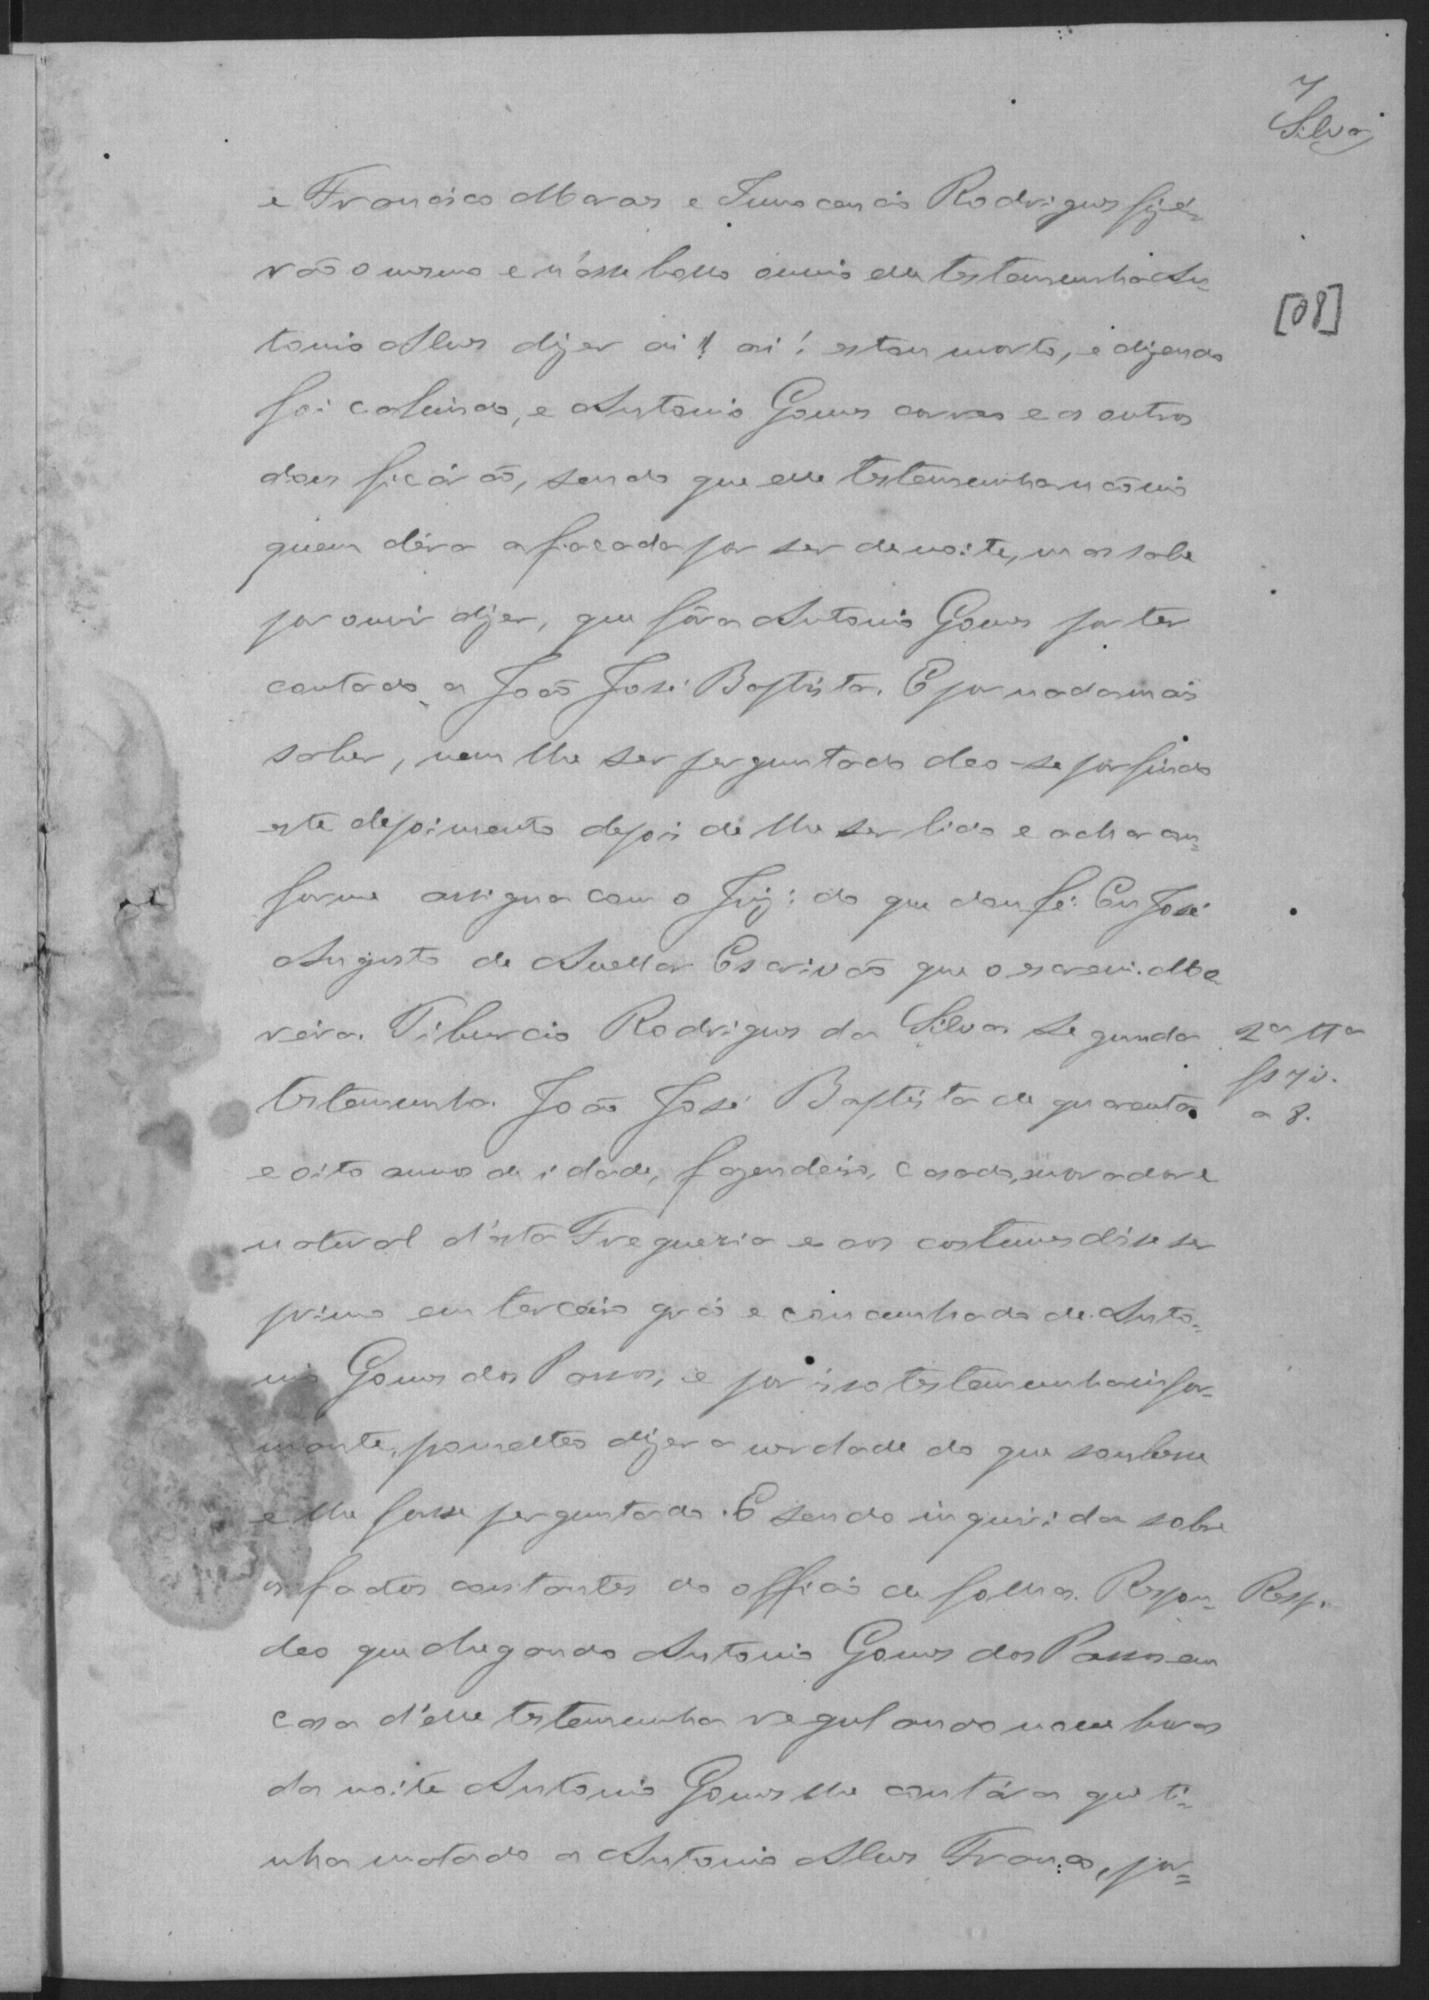 7
Silva
[08]
e Francisco Moraes e Innocencio Rodrigues fizé-
rão o mesmo e n'esse baile ouvio elle testemunha An-
tonio Alves dizer ai! ai! estou morto, e dizendo
foi cahindo, e Antonio Gomes correo e os outros
dous ficárão, sendo que elle testemunha não vio
quem déra a facada por ser de noite, mas sabe
por ouvir dizer, que fôra Antonio Gomes por ter
contado a João José Baptista. E por nada mais
saber, nem lhe ser perguntado deo-se por findo
este depoimento depois de lhe ser lido e achar con-
forme assigna com o Juiz: do que dou fé. Eu José
Augusto de Avellar Escrivão que o escrevi.
Tiburcio Rodrigues da Silva Segunda
2ª Tª
fs 7 v.
a 8.
testemunha. João José Baptista de quarenta
e oito annos de idade, fazendeiro, casado, morador e
natural d'esta Freguezia e aos costumes disse ser
primo em terceiro gráo e concunhado de Anto-
nio Gomes dos Passos, e por isso testemunha infor-
mante, prometteo dizer a verdade do que soubesse
e lhe fosse perguntado. E sendo inquirida sobre
os factos constantes do officio de folha. Respon-
Resp.
deo que chegando Antonio Gomes dos Passos em
casa d'elle testemunha regulando nove horas
da noite Antonio Gomes lhe contára que ti-
nha matado a Antonio Alves França, por-